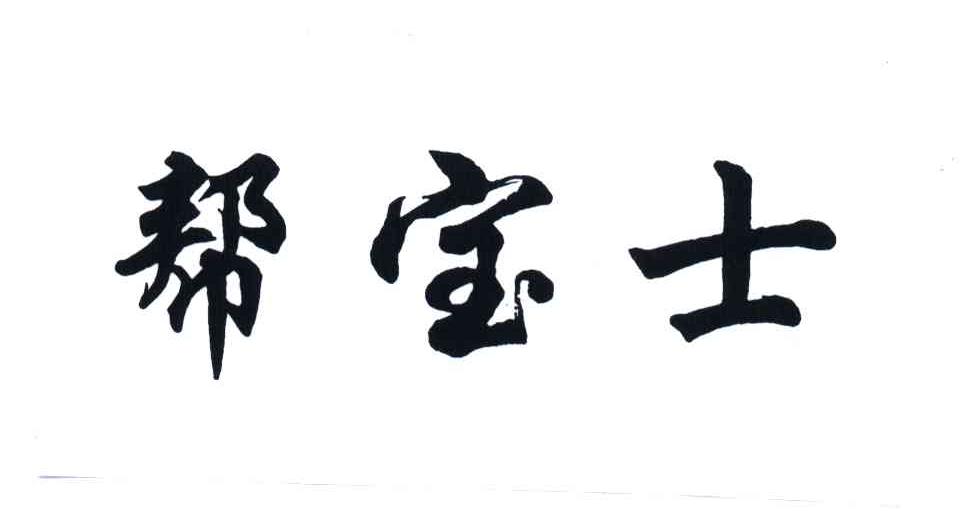 帮宝士